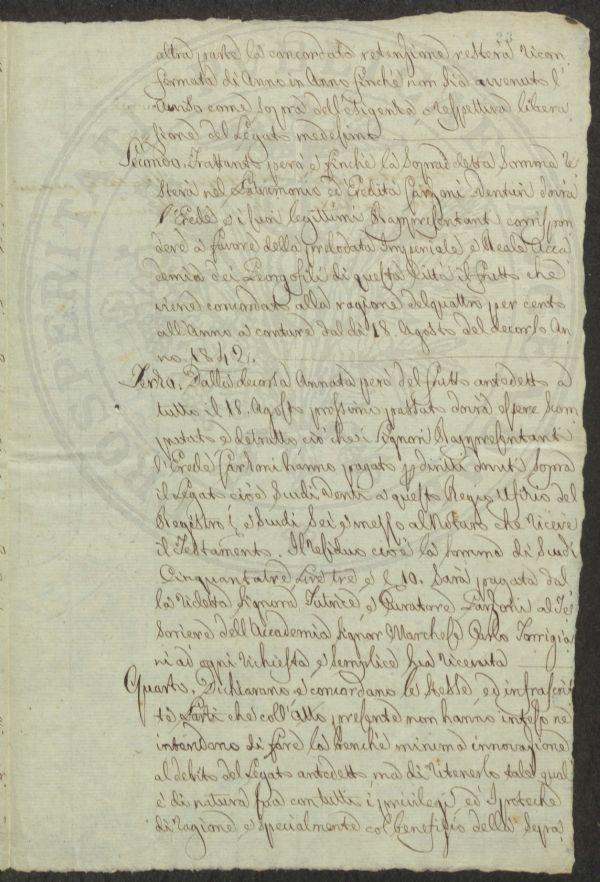 23
altra parte la concordata retenzione resterà ricon
fermata di Anno in Anno finché non sia avvenuto l'
Avviso come sopra dell'Esigenza, o respettiva libera
zione del Legato medesimo
Secondo. Frattanto però e finché la sopradetta somma re
sterà nel Patrimonio ed Eredità Garzoni Venturi dovrà
l'Erede e i suoi legittimi Rappresentanti corrispon
dere a favore della prelodata Imperiale e Reale Acca
demia dei Georgofili di questa Città il frutto che
viene concordato alla ragione del quattro per cento
all'Anno a contare dal dì 18. Agosto del decorso An
no 1842.
Terzo. Dalla decorsa Annata però del frutto antedetto a
tutto il 18. Agosto prossimo passato dovrà essere scom
putato e detratto ciò che i Signori Rappresentanti
l'Erede Garzoni hanno pagato p diritti dovuti sopra
il Legato cioè Scudi Venti a questo Regio Ufizio del
Registro, e Scudi Sei e mezzo al Notaro che riceve
il Testamento. Il residuo cioè la somma di Scudi
Cinquantatre Lire tre e 10. sarà pagata dal
la ridetta Signora Tutrice e Curatore Garzoni al Te
soriere dell'Accademia Signor Marchese Carlo Torrigia
ni ad ogni richiesta e semplice sua ricevuta
Quarto. Dichiarano e concordano le stesse ed infrascrit
te Parti che coll'Atto presente non hanno inteso ne
intendono di fare la benché minima innovazione
al debito del Legato antedetto, ma di ritenerlo tale qual'
è di natura sua con tutti i privilegi ed Ipoteche
di ragione e specialmente col benefizio della Sepra